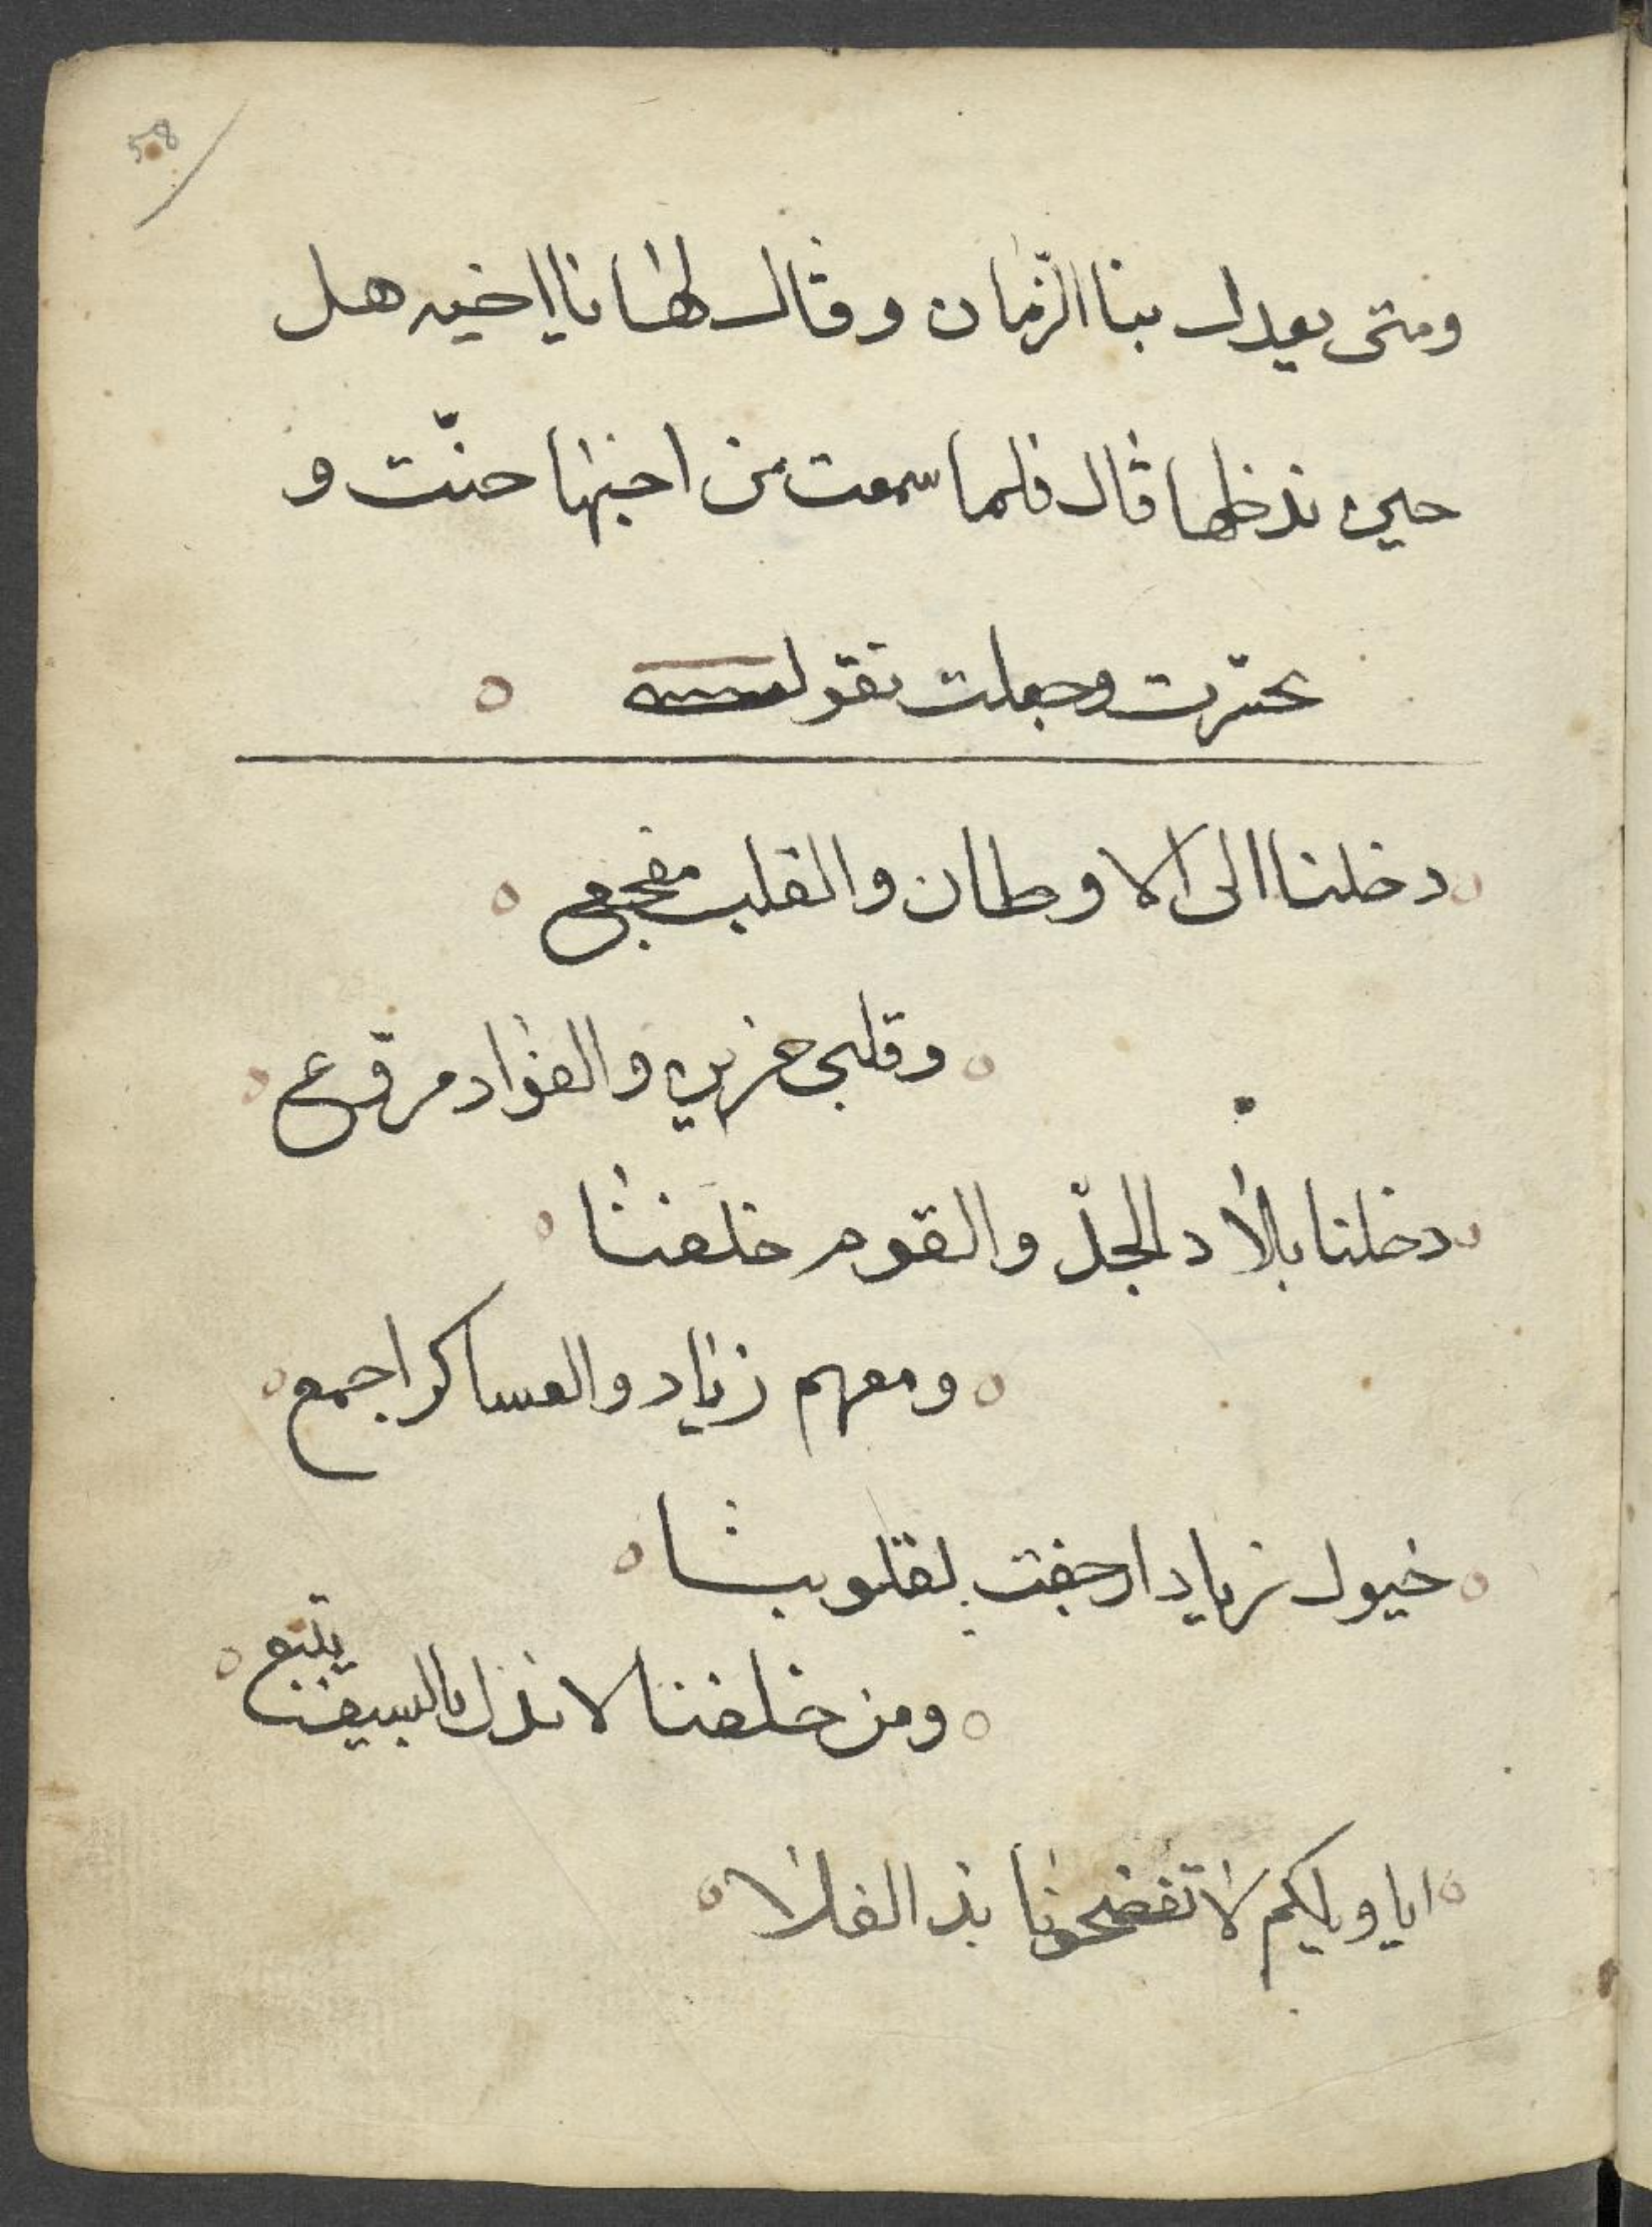 58
ومتى يعدل بنا الزّمان وقال لها نا يا اخيه هل
حين ندخلها قال فلما سمعت من اخيها حنّت و
تحسّرت وجعلت تقول
دخلنا الى الاوطان والقلب مفجع
وقلبى حزين والفواد مروّع
دخلنا بلاد الجدّ والقوم خلفنا
ومعهم زياد والعساكر اجمع
خيول زياد ارجفت بقلوبنا
ومن خلفنا لا نذل بالسيف يتبع
ايا ويلكم لا تفضحونا بذ الفلا